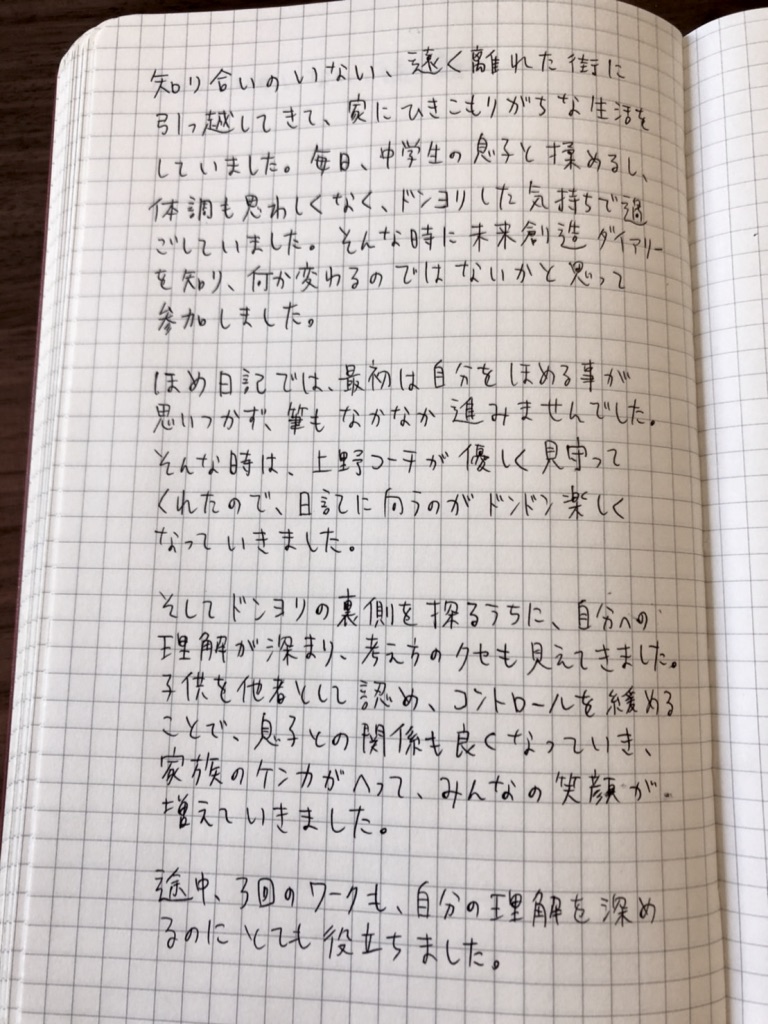 知り合いのいない、遠く離れた街に
引っ越してきて、家にひきこもりがちな生活を
していました。毎日、中学生の息子と揉めるし、
体調も思わしくなく、ドンヨリした気持ちで過
ごしていました。そんな時に未来創造ダイアリー
を知り、何か変わるのではないかと思って
参加しました。
ほめ日記では、最初は自分をほめる事が
思いつかず、筆もなかなか進みませんでした。
そんな時は、上野コーチが優しく見守って
くれたので、日記に向うのがドンドン楽しく
なっていきました。
そしてドンヨリの裏側を探るうちに、自分への
理解が深まり、考え方のクセも見えてきました。
子供を他者として認め、コントロールを緩める
ことで、息子との関係も良くなっていき、
家族のケンカがへって、みんなの笑顔が
増えていきました。
途中、3回のワークも、自分の理解を深め
るのにとても役立ちました。